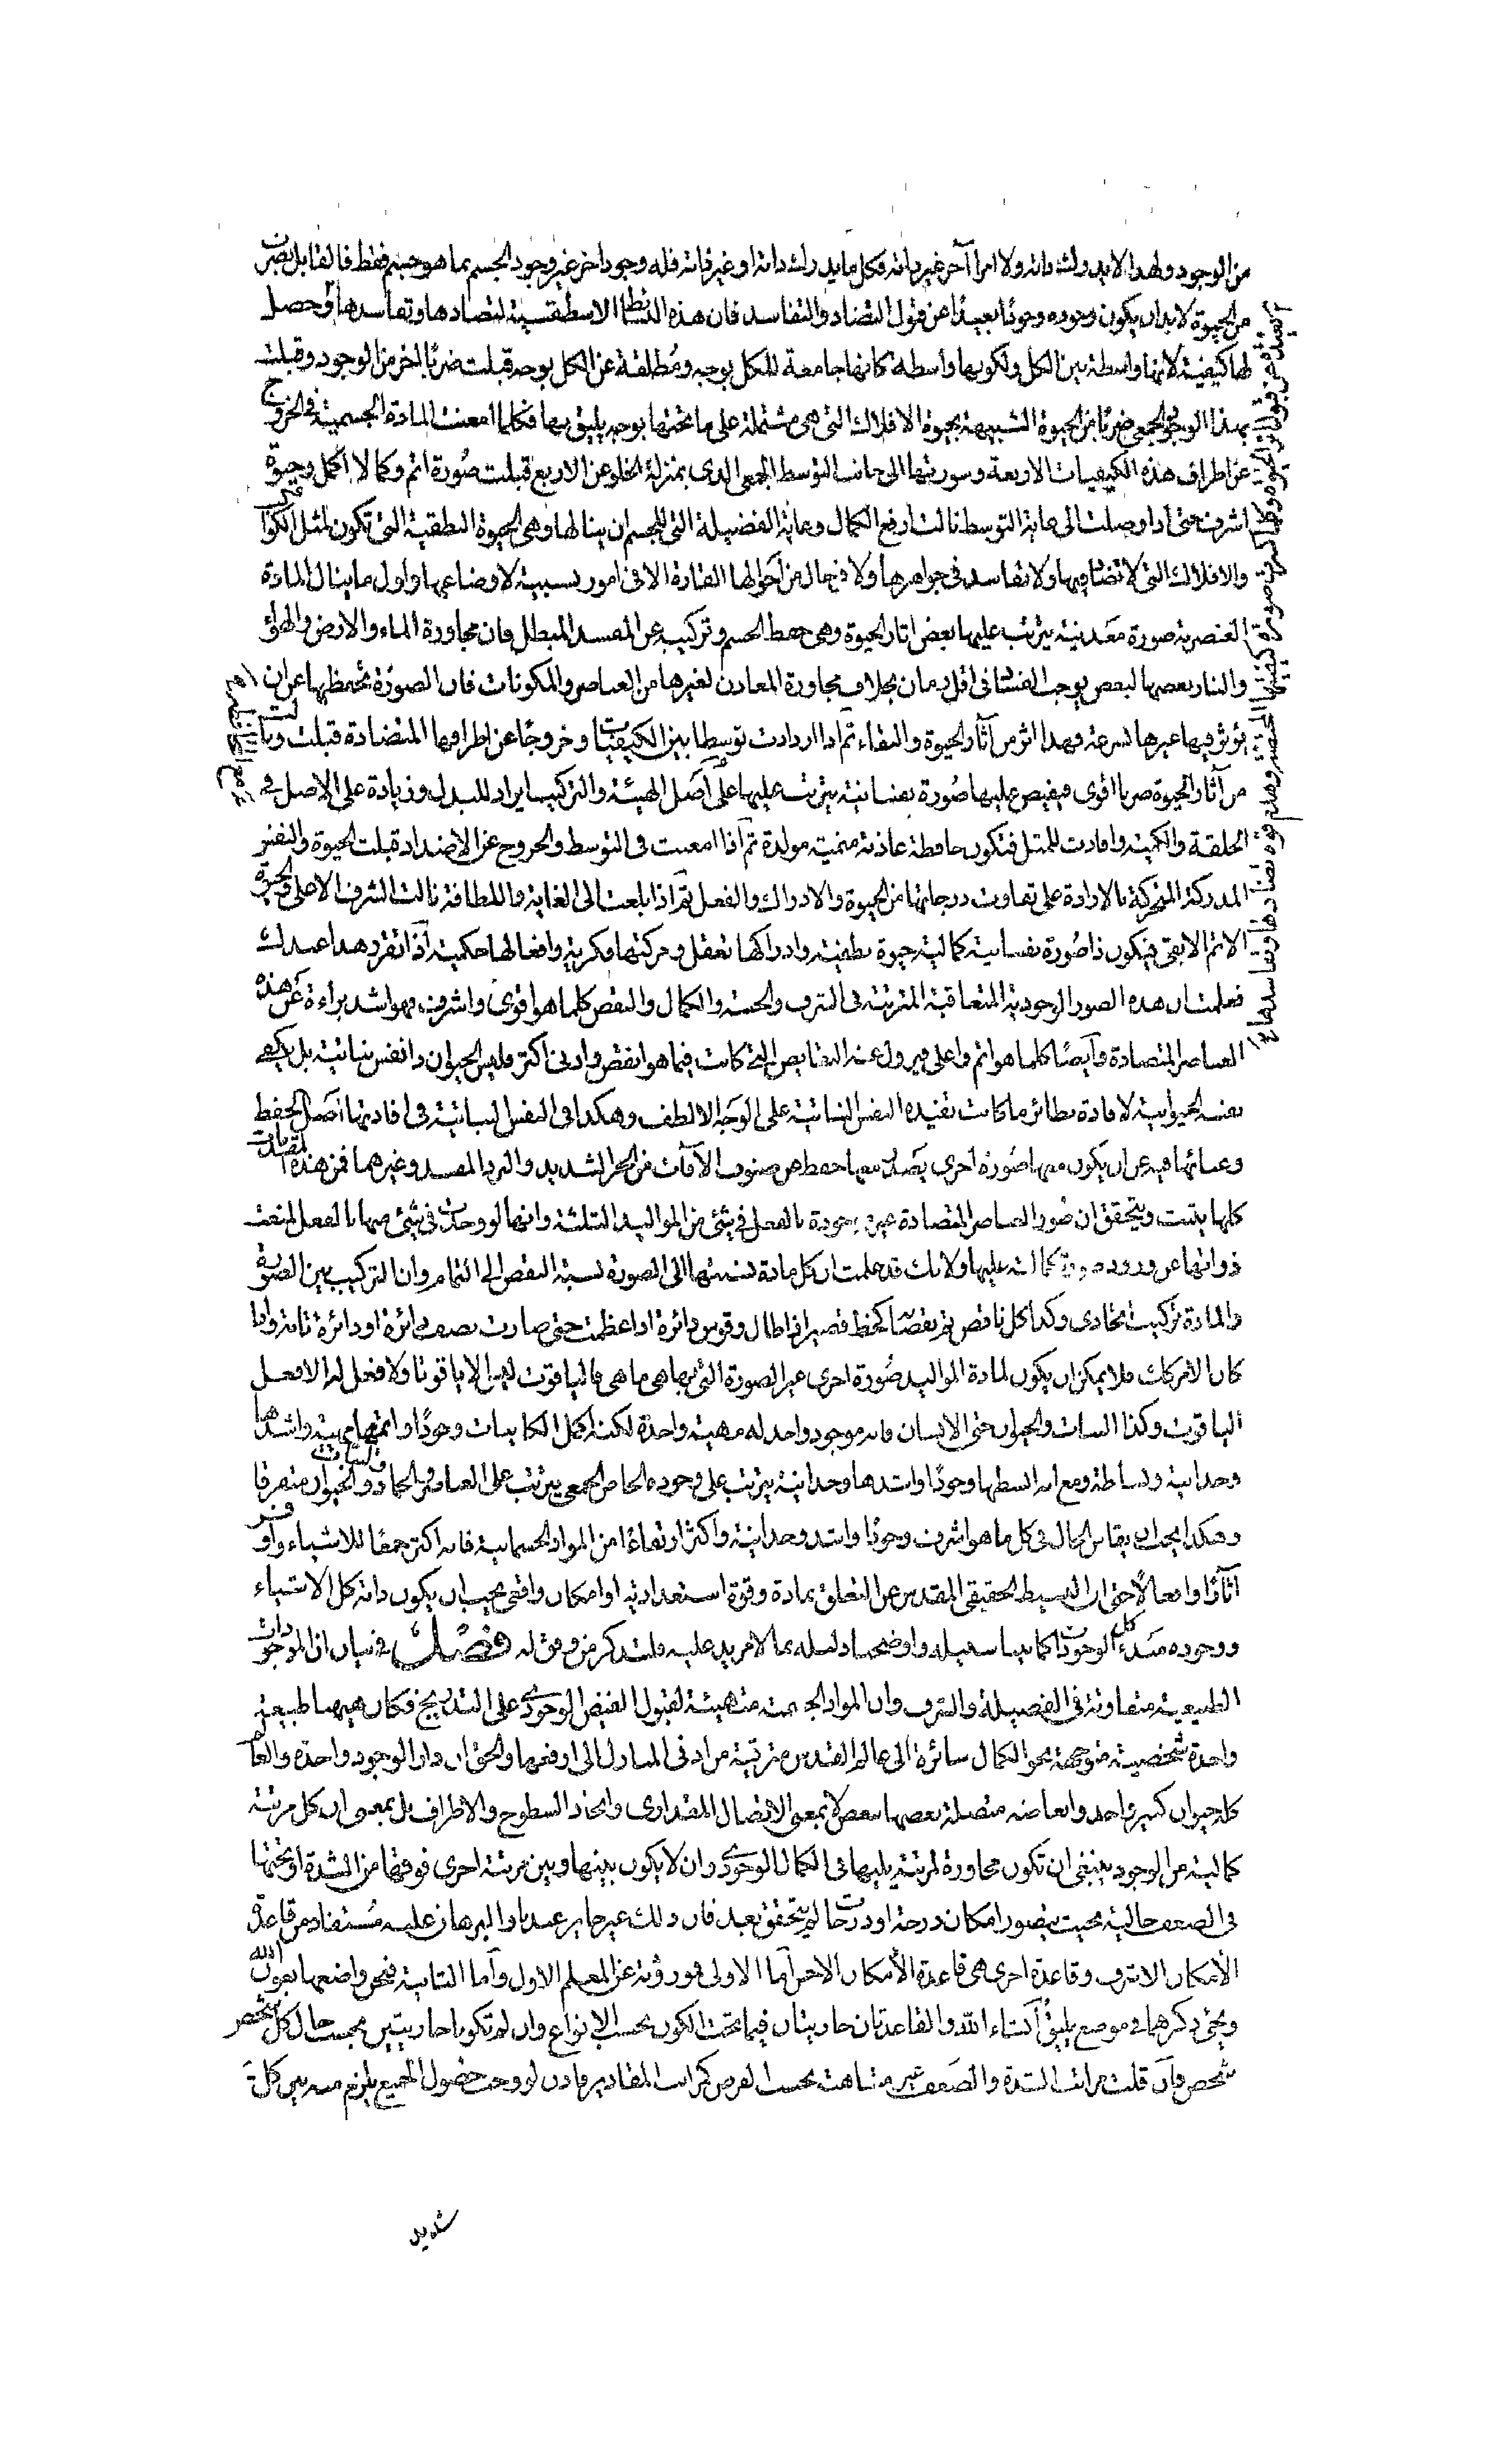 من الوجود ولهذا لا يدرك ذاته ولا امرا آخر غير ذاته وكل ما يدرك ذاته او غير ذاته فله وجود اخر غير وجود الجسم بما هو جسم فقط فالقابل لضرب
من الحيوة لابد ان يكون وجوده وجودًا بعيدًا عن قبول التضاد والتفاسد فان هذه البسائط الاسطقسية لتضادها وتفاسدها
لها كيفية لانها واسطة بين الكل ولكونها واسطة كانها جامعة للكل بوجه ومُطلقة عن الكل بوجه قبلت ضربًا اخر من الوجود وقبلت
بهذا الوجود الجمعى ضربًا من الحيوة الشبيهة بحيوة الافلاك التى هى مشتملة على ما تحتها بوجه يليق بها فكلما امعنت المادة الجسمية فى الخروج
عن اطراف هذه الكيفيات الاربعة وسورتها الى جانب التوسط الجمعى الذى بمنزلة الخلو عن الاربع قبلت صُورة اتم وكمالا اكمل وحيوة
اشرف حتى اذا وصلت الى غاية التوسط نالت ارفع الكمال وغاية الفضيلة التى للجسم ان ينالها وهى الحيوة النطقية التى تكون لمثل الكواكب
والافلاك التى لا تضاد فيها ولا تفاسد فى جواهرها ولا فى حال من احوالها القارة الا فى امور نسبية لاوضاعها واول ما ينال المادة
العنصرية صورة معدنية يترتب عليها بعض اثار الحيوة وهى حفظ الجسم وتركيبه عن المفسد المبطل فان مجاورة الماء والارض والهواء
والنار بعضها لبعض يوجب الفساد فى اقل زمان بخلاف مجاورة المعادن لغيرها من العناصر والمكونات فان الصورة تحفظها عن ان
يؤثر فيها غيرها بسرعة وهذا اثر من آثار الحيوة والبقاء ثم اذا ازدادت توسطا بين الكيفيات وخروجًا عن اطرافها المتضادة قبلت ونالت
من آثار الحيوة ضربا اقوى فيفيض عليها صُورة نفسانية يترتب عليها على اصل الهيئة والتركيب ايراد للبدل وزيادة على الاصل فى
الخلقة والكمية وافادت للمثل فتكون حافظة غاذية منمية مولدة ثم اذا امعنت فى التوسط والخروج عن الاضداد قبلت الحيوة والنفس
المدركة المتحركة بالارادة على تفاوت درجاتها من الحيوة والادراك والفعل ثم اذا بلغت الى الغاية واللطافة نالت الشرف الاعلى والحيوة
الاتم الابقى فيكون ذا صُورة نفسانية كمالية حيوة نطقية وادراكها تعقل وحركتها فكرية وافعالها حكمية اذا تقرر هذا عندك
فعلمت ان هذه الصور الوجودية المتعاقبة المترتبة فى الشرف والخسة والكمال والنقص كلما هو اقوى واشرف فهو اشد براءة عن هذه
العناصر المتضادة وايضًا كلما هو اتم واعلى فيزول عنه النقايص التى كانت فيما هو انقص وادنى اكثر فليس الحيوان ذا نفس نباتية بل يكفى
نفسه الحيوانية لافادة نظائر ما كانت تفيده النفس النباتية على الوجه الالطف وهكذا فى النفس النباتية فى افادتها اصل الحفظ
وغنائها فيه عن ان يكون معها صُورة اخرى يصدر معها حفظ من صنوف الآفات من الحر الشديد والبرد المفسد وغيرهما فمن هذه المقدمات
كلها يثبت ويتحقق ان صُور العناصر المتضادة غير موجودة بالفعل فى شئ من المواليد الثلثة وانها لو وجدت فى شئ منها بالفعل لمنعت
ذواتها عن ورود صورة كمالية عليها ولانك قد علمت ان كل مادة نسبتها الى الصورة نسبة النقص الى التمام وان التركيب بين الصورة
والمادة تركيب اتحادى وكذا كل ناقص نقصًا كخط قصير اذا طال وقوس دائرة اذا عظمت حتى صارت نصف دائرة او دائرة تامة واذا
كان الامر كذلك فلا يمكن ان يكون لمادة المواليد صُورة اخرى غير الصورة التى بها هى ما هى فالياقوت ليس الا ياقوتا ولا فعل له الا فعل
الياقوت وكذا النبات والحيوان حتى الانسان فانه موجود واحد له مهية واحدة لكنه اكمل الكاينات وجودًا واتمها مهية واشدها
وحدانية وبساطة ومع انه ابسطها وجودًا واشدها وحدانية يترتب على وجوده الخاص الجمعى ما يترتب على العناصر والجماد والنبات والحيوان متفرقا
وهكذا يجب ان يقاس الحال فى كل ما هو اشرف وجودًا واشد وحدانية واكثر ارتفاعًا من المواد الجسمانية فانه اكثر جمعًا للاشياء واوفر
آثارًا وافعالًا حتى ان البسيط الحقيقى المقدس عن التعلق بمادة وقوة استعدادية او امكان واقعى يجب ان يكون ذاته كل الاشياء
ووجوده مبدء كل الوجودات كما بينا سبيله واوضحنا دليله بما لا مزيد عليه فليتذكر من وفق له فصل فى بيان ان الموجودات
الطبيعية متفاوتة فى الفضيلة والشرف وان المواد الجسمية متهيئة لقبول الفيض الوجودى على التدريج فكان هيهنا طبيعة
واحدة شخصية متوجهة نحو الكمال سائرة الى عالم القدس مترتبة من ادنى المنازل الى ارفعها والحق ان دار الوجود واحدة والعالم
كله حيوان كبير واحد وابعاضه متصلة بعضها ببعض لا بمعنى الاتصال المقدارى واتحاد السطوح والاطراف بل بمعنى ان كل مرتبة
كمالية من الوجود ينبغى ان تكون مجاورة لمرتبة يليها فى الكمال الوجودى وان لا يكون بينها وبين مرتبة اخرى فوقها من الشدة او تحتها
فى الضعف خالية بحيث يتصور امكان درجة او درجات لم يتحقق بعد فان ذلك غير جايز عندنا والبرهان عليه مُستفاد من قاعدة
الامكان الاشرف وقاعدة اخرى هى قاعدة الامكان الاخس اما الاولى فموروثة عن المعلم الاول واما الثانية فنحن واضعها بعون الله
ويجئ ذكرهما فى موضع يليق انشاء الله والقاعدتان جاريتان فيما تحت الكون بحسب الانواع وان لم تكونا جاريتين بحسب حال كل شخص
شخص فان قلت مراتب الشدة والضعف غير متناهية بحسب الفرض كمراتب المقادير فاذن لو وجب حصول الجميع يلزم منه بين كل
شديد